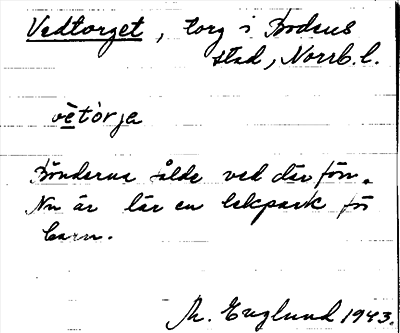 Vedtorget, torg i Bodens
stad, Norrb. l.
vètòrja
Bönderna sålde ved där förr.
Nu är där en lekpark för
barn.
M. Englund 1943.